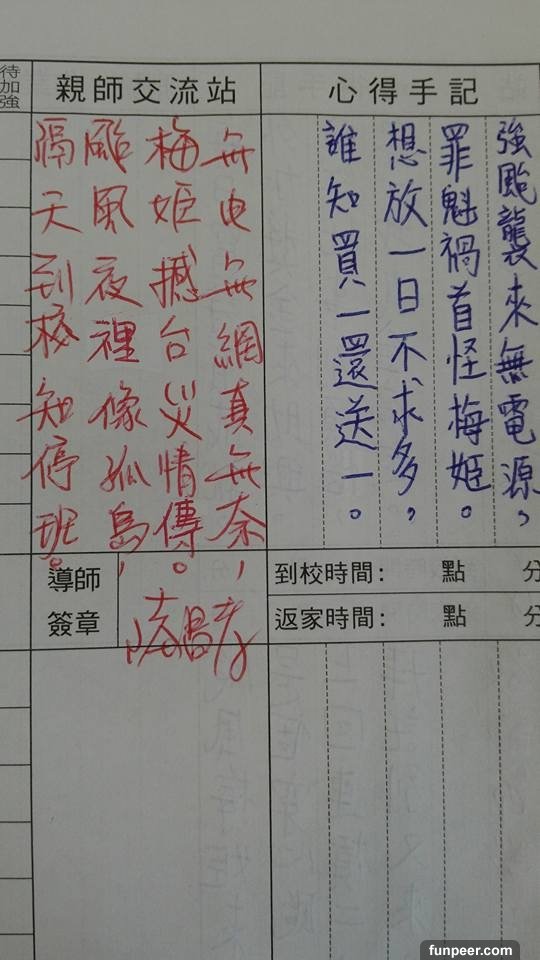 待加強
親師交流站
心得手記
強颱襲來無電源，
罪魁禍首怪梅姬。
想放一日不求多，
誰知買一還送一。
無电無網真無奈，
梅姬撼台災情傳。
颱風夜裡像孤島，
隔天到校知停班。
導師
簽章
到校時間： 點 分
返家時間： 點 分
funpeer.com